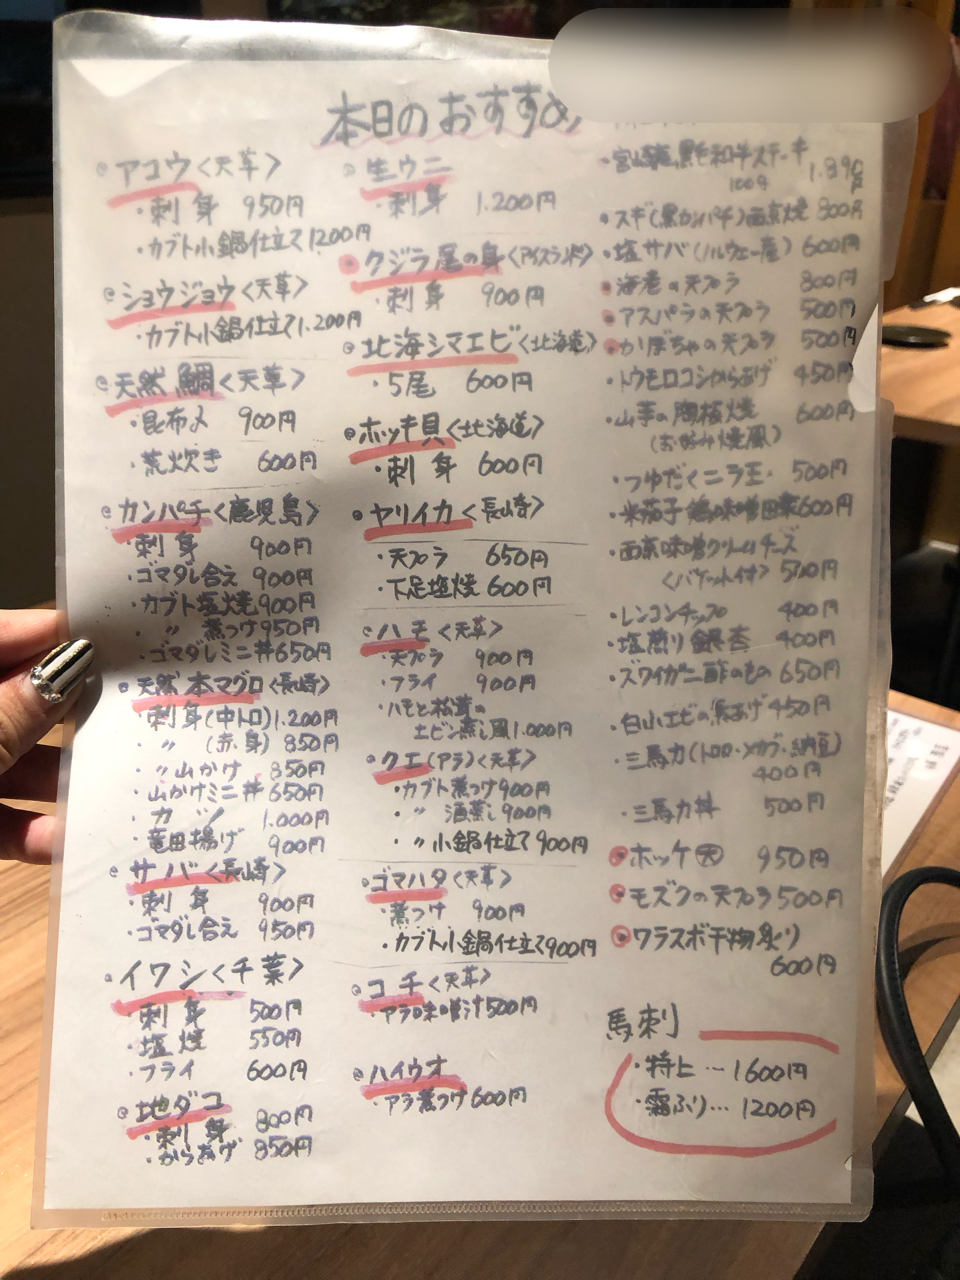 本日のおすすめ
アコウ〈天草〉
・刺身 950円
・カブト小鍋仕立て1200円
ショウジョウ〈天草〉
・カブト小鍋仕立て1.200円
天然鯛〈天草〉
・昆布〆 900円
・荒炊き 600円
カンパチ〈鹿児島〉
・刺身 900円
・ゴマダレ合え 900円
・カブト塩焼900円
・〃 煮つけ950円
・ゴマダレミニ丼650円
天然本マグロ〈長崎〉
・刺身(中トロ)1.200円
・〃 (赤身) 850円
・〃山かけ 850円
・山かけミニ丼650円
1.000円
・竜田揚げ 900円
サバ〈長崎〉
・刺身 900円
・ゴマダレ合え 950円
イワシ〈千葉〉
・刺身 500円
・塩焼 550円
・フライ 600円
地ダコ
・刺身 800円
・からあげ 850円
生ウニ
・刺身 1.200円
クジラ尾の身〈アイスランド〉
・刺身 900円
北海シマエビ〈北海道〉
・5尾 600円
ホッキ貝〈北海道〉
・刺身 600円
ヤリイカ〈長崎〉
・天プラ 650円
・下足塩焼 600円
ハモ〈天草〉
・天プラ 900円
・フライ 900円
・ハモと松茸の
土ビン蒸し風1.000円
クエ(アラ)〈天草〉
・カブト煮つけ900円
・〃 酒蒸し900円
・〃小鍋仕立て900円
ゴマハタ〈天草〉
・煮つけ 900円
・カブト小鍋仕立て900円
コチ〈天草〉
・アラ味噌汁500円
ハイウオ
・アラ煮つけ600円
・宮崎産黒毛和牛ステーキ
100g
・スギ(黒カンパチ)西京焼 800円
・塩サバ(ノルウェー産) 600円
・海老の天プラ 800円
・アスパラの天プラ 500円
・かぼちゃの天プラ 500円
・トウモロコシからあげ 450円
・山芋の陶板焼 600円
(お好み焼風)
・つゆだくニラ玉 500円
・米茄子鶏味噌田楽600円
・西京味噌クリームチーズ
〈バケット付〉 500円
・レンコンチップ 400円
・塩煎り銀杏 400円
・ズワイガニ酢のもの 650円
・白小エビの唐あげ 450円
・三馬力(トロロ・メカブ・納豆)
400円
・三馬力丼 500円
・ホッケ㊅ 950円
・モズクの天プラ500円
・ワラスボ干物炙り
600円
馬刺
・特上…1600円
・霜ふり…1200円